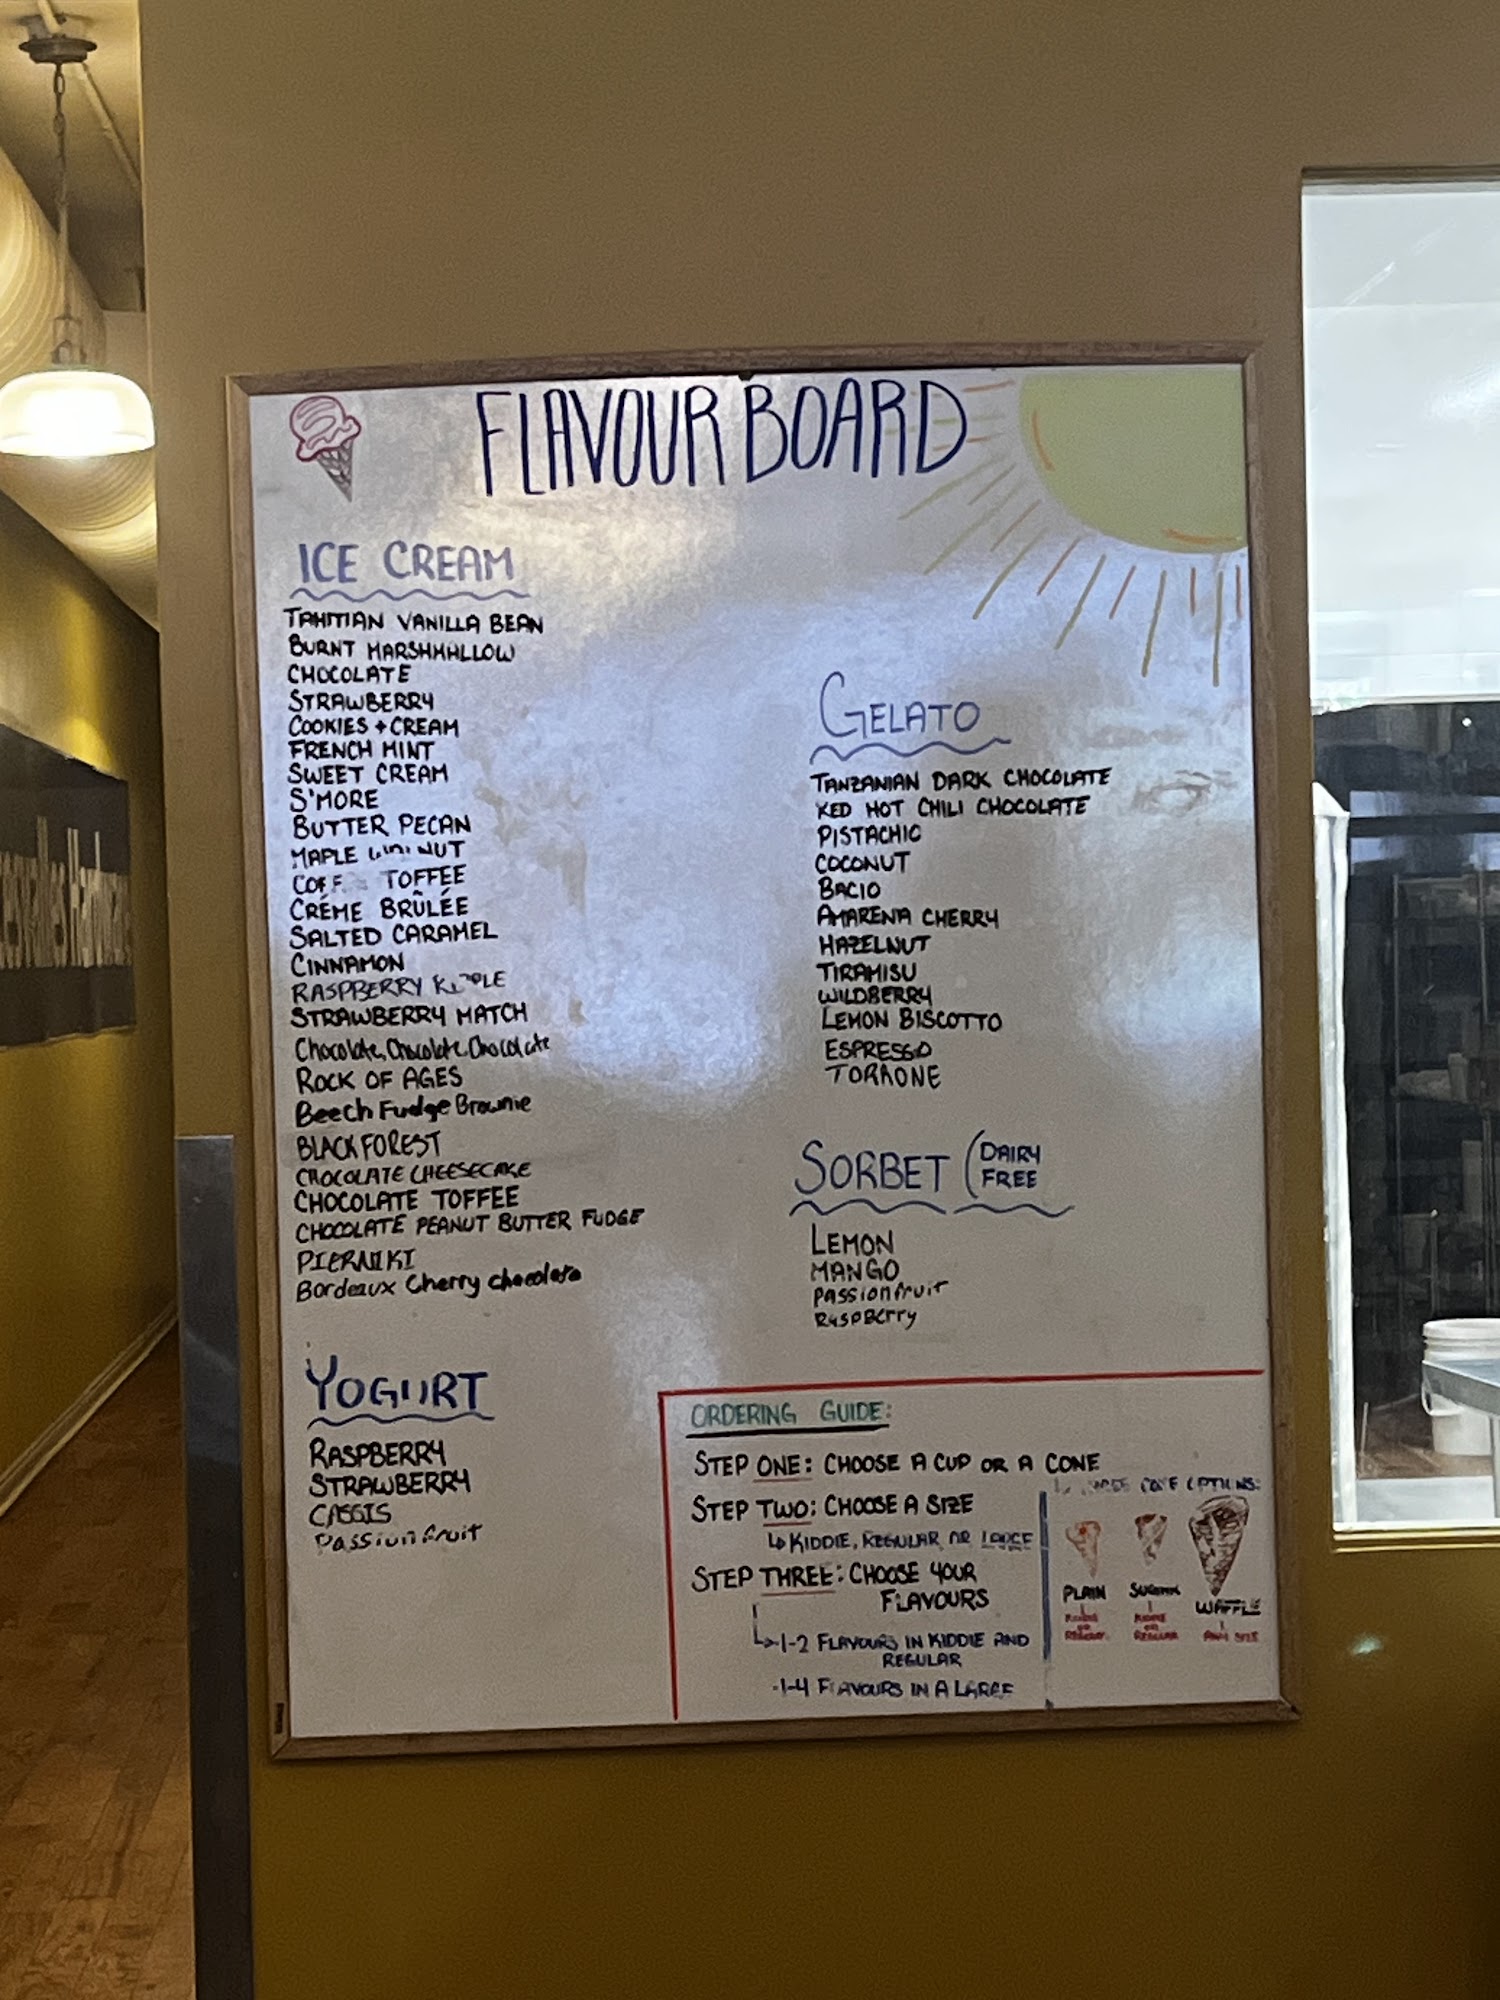 FLAVOUR BOARD
ICE CREAM
TAHITIAN VANILLA BEAN
BURNT MARSHMALLOW
CHOCOLATE
STRAWBERRY
COOKIES + CREAM
FRENCH MINT
SWEET CREAM
S'MORE
BUTTER PECAN
MAPLE
TOFFEE
CRÉME BRÛLÉE
SALTED CARAMEL
CINNAMON
RASPBERRY
STRAWBERRY MATCH
Chocolate, Chocolate, Chocolate
ROCK OF AGES
Beech Fudge Brownie
BLACK FOREST
CHOCOLATE CHEESECAKE
CHOCOLATE TOFFEE
CHOCOLATE PEANUT BUTTER FUDGE
PIERNIKI
Bordeaux Cherry chocolate
YOGURT
RASPBERRY
STRAWBERRY
CASSIS
Passionfruit
GELATO
TANZANIAN DARK CHOCOLATE
RED HOT CHILI CHOCOLATE
PISTACHIO
COCONUT
BACIO
AMARENA CHERRY
HAZELNUT
TIRAMISU
WILDBERRY
LEMON BISCOTTO
ESPRESSO
TORRONE
SORBET (DAIRY
FREE
LEMON
MANGO
PASSIONfruit
RASPBERRY
ORDERING GUIDE:
STEP ONE: CHOOSE A CUP OR A CONE
STEP TWO: CHOOSE A SIZE
↳ KIDDIE, REGULAR OR LARGE
STEP THREE: CHOOSE YOUR
FLAVOURS
1-2 FLAVOURS IN KIDDIE AND
REGULAR
1-4 FLAVOURS IN A LARGE
CONE OPTIONS:
PLAIN
KIDDIE
OR
REGULAR
SUGAR
KIDDIE
OR
REGULAR
WAFFLE
ANY SIZE